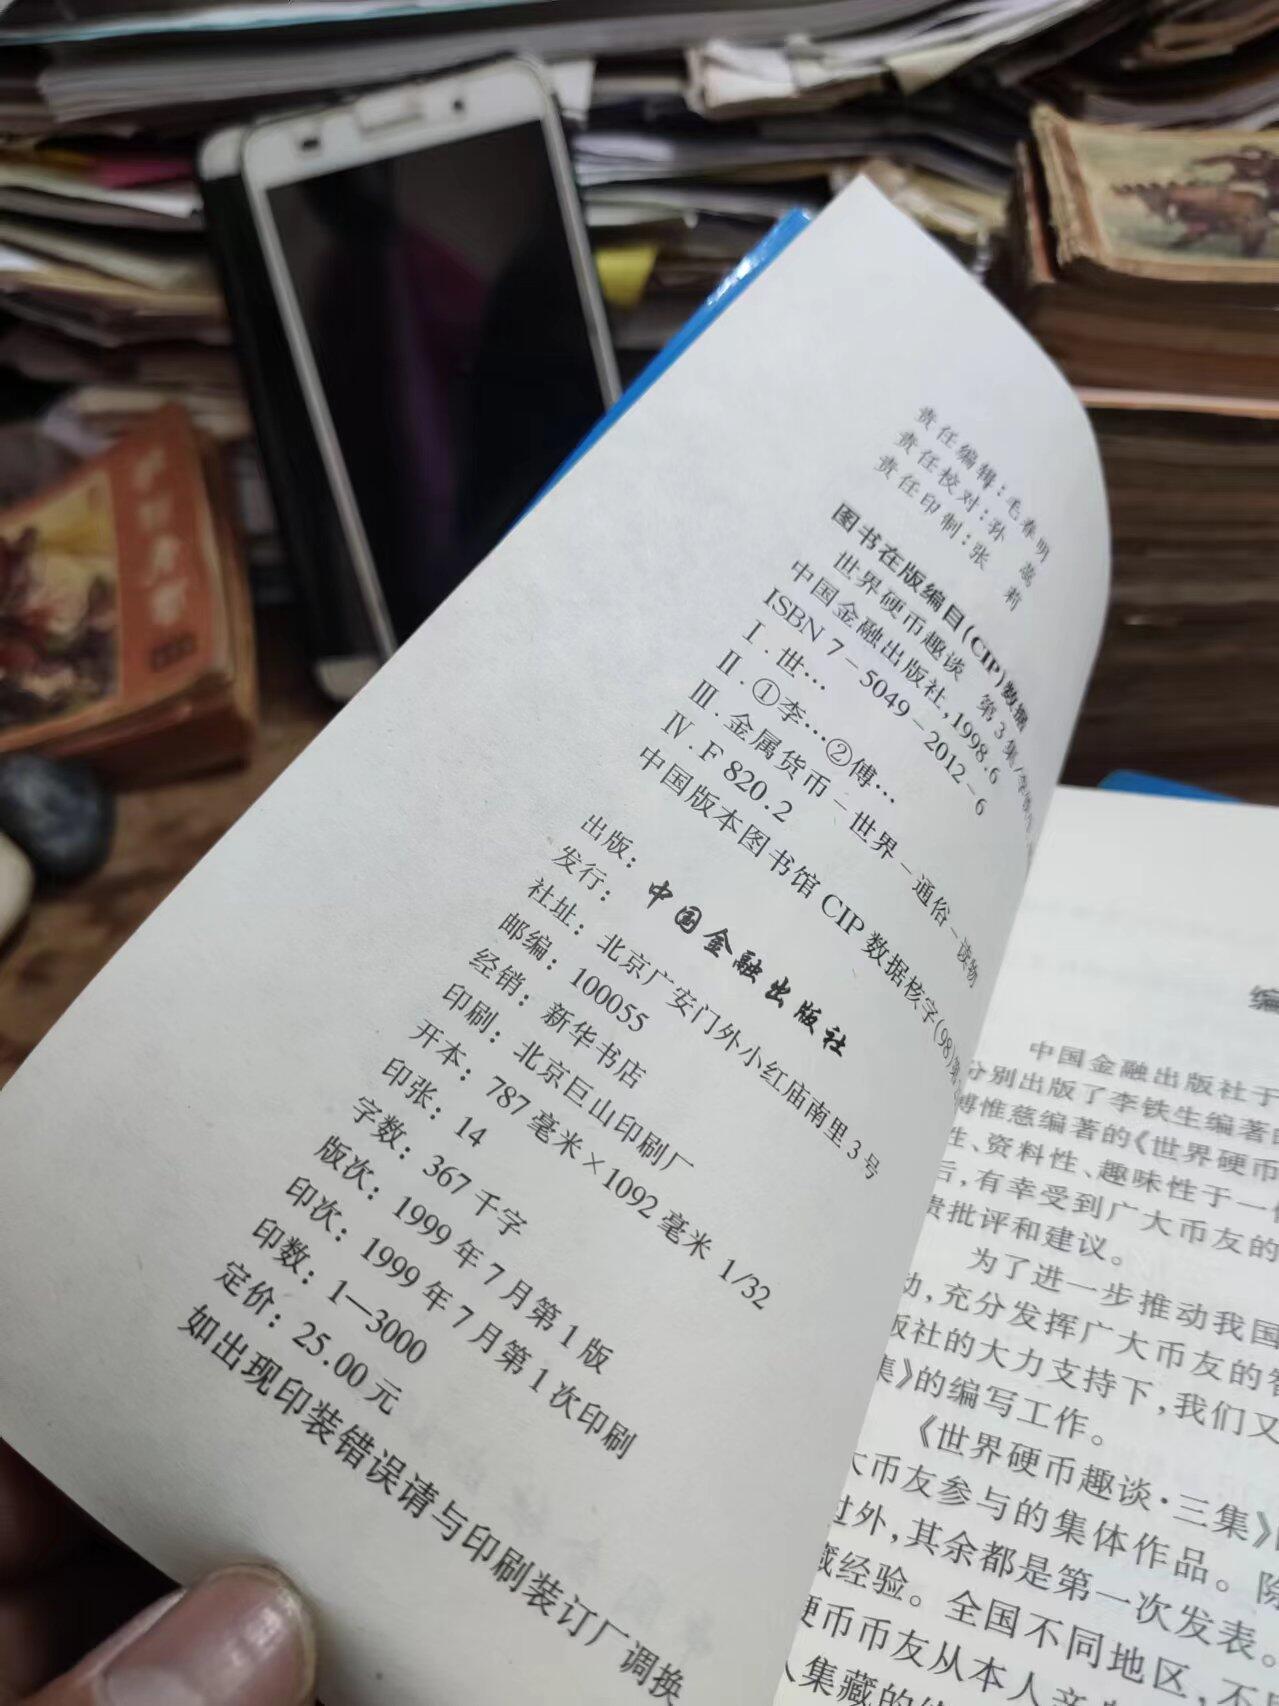 责任编辑：毛春明
责任校对：孙 蕊
责任印制：张 莉
图书在版编目(CIP)数据
世界硬币趣谈 第3集/李
中国金融出版社，1998.6
ISBN 7-5049-2012-6
Ⅰ.世…
Ⅱ.①李…②傅…
Ⅲ.金属货币-世界-通俗-读物
Ⅳ.F 820.2
中国版本图书馆 CIP 数据核字(98)第
出版：
发行：
中国金融出版社
社址：北京广安门外小红庙南里3号
邮编：100055
经销：新华书店
印刷：北京巨山印刷厂
开本：787毫米×1092毫米 1/32
印张：14
字数：367千字
版次：1999年7月第1版
印次：1999年7月第1次印刷
印数：1—3000
定价：25.00元
如出现印装错误请与印刷装订厂调换
编
中国金融出版社于
分别出版了李铁生编著
傅惟慈编著的《世界硬币
性、资料性、趣味性于一
后，有幸受到广大币友的
贵批评和建议。
为了进一步推动我国
动，充分发挥广大币友的
版社的大力支持下，我们又
集》的编写工作。
《世界硬币趣谈·三集》
大币友参与的集体作品。除
过外，其余都是第一次发表。
藏经验。全国不同地区、不
硬币币友从本人亲
人集藏的